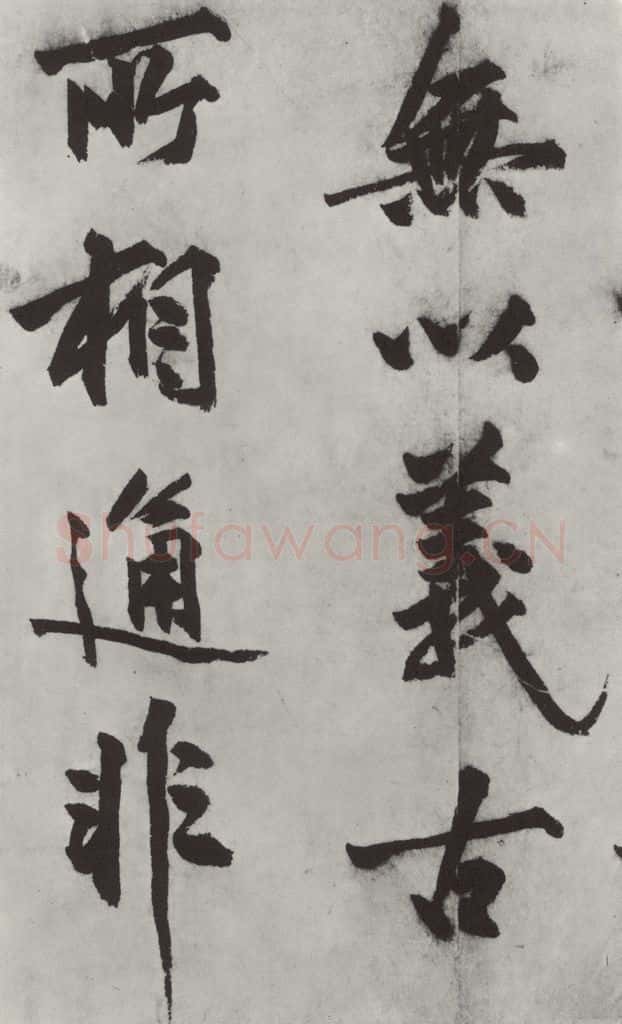 無以義古
所相通非
Shufawang.CN